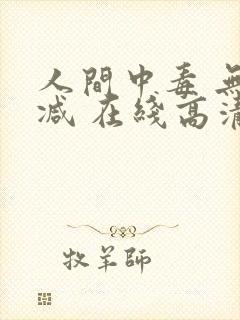 人間中毒 無
減 在綫高清
牧羊師